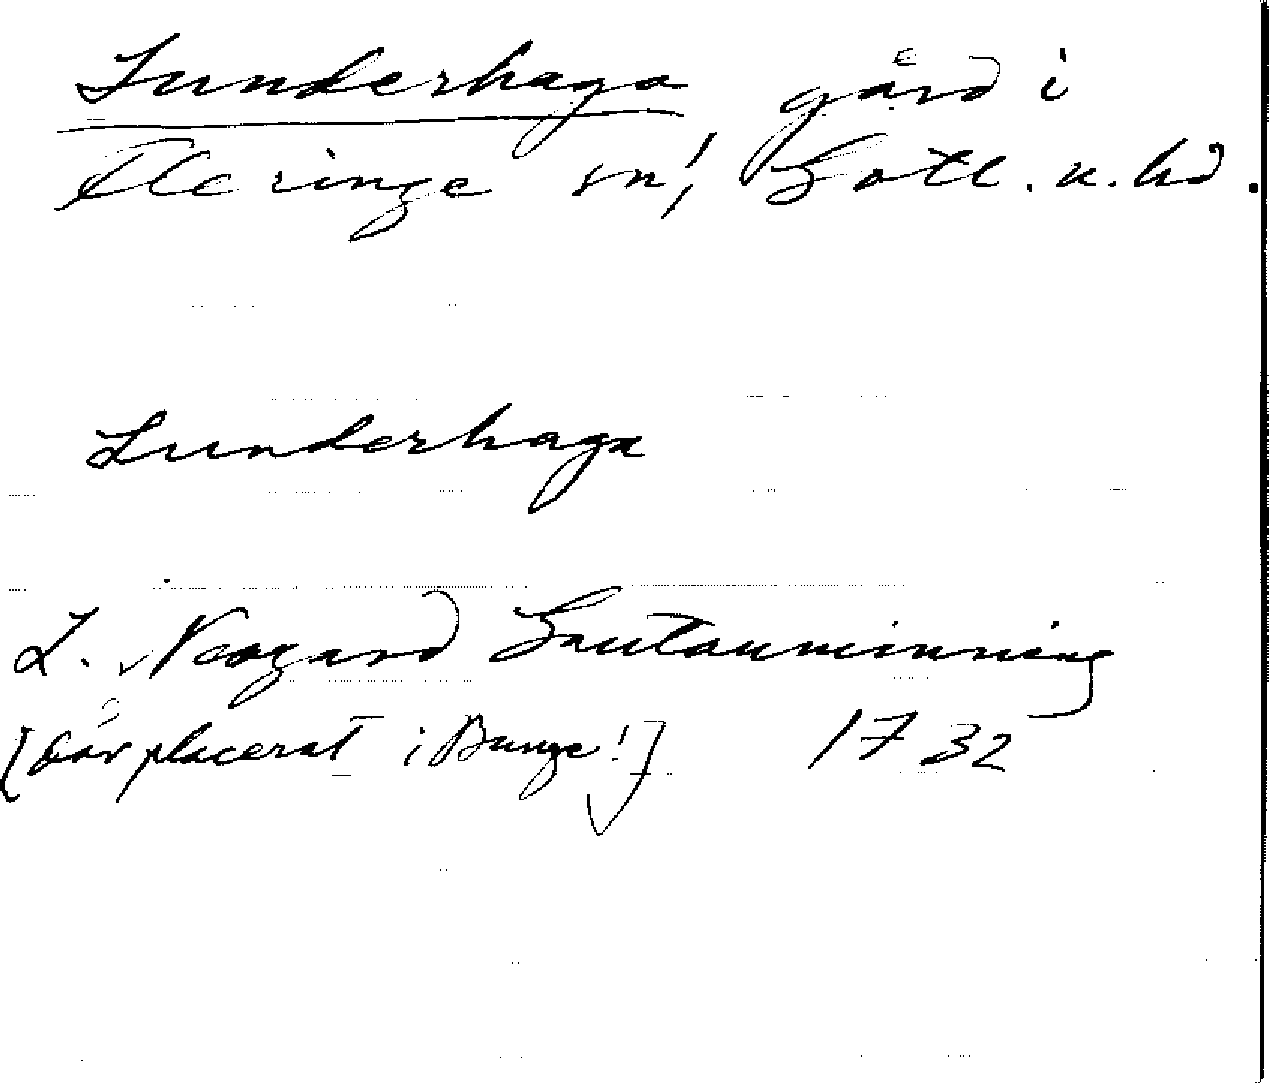 Lunderhaga gård i
Fleringe sn, Gotl. n. hd.
Lunderhaga
L. Neogard Gautauminning
[här placerat i Bunge!] 1732